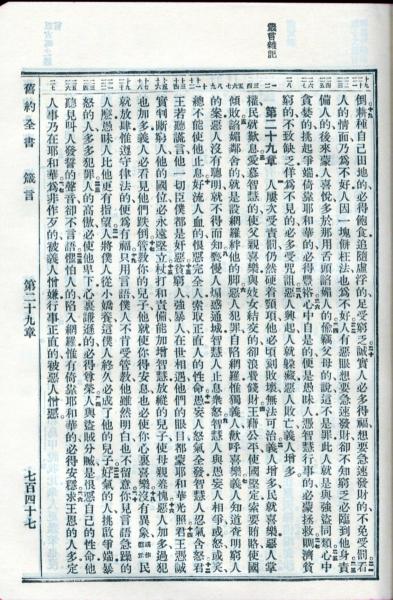 倒耕種自己田地的必得飽食追隨虛浮的足受窮乏誠實人必多得福想要急速發財的不免受罰看
人的情面乃爲不好人因一塊餅枉法也爲不好人有惡眼想要急速發財卻不知窮乏必臨到他身責
備人的後來蒙人喜悅多於那用舌頭諂媚人的偷竊父母的說這不是罪此人就是與強盜同類心中
貪婪的挑起爭端倚靠耶和華的必得豐裕心中自是的便是愚昧人憑智慧行事的必蒙拯救賙濟貧
窮的不致缺乏佯爲不見的必多受咒詛惡人興起人就躲藏惡人敗亡義人增多
第二十九章 人屢次受責罰仍然硬着頸項他必頃刻敗壞無法可治義人增多民就喜樂惡人掌
權民就歎息愛慕智慧的使父親喜樂與妓女結交的卻浪費錢財王藉公平使國堅定索要賄賂使國
傾敗諂媚鄰舍的就是設網羅絆他的脚惡人犯罪自陷網羅惟獨義人歡呼喜樂義人知道查明窮人
的案惡人沒有聰明就不得而知褻慢人煽惑通城智慧人止息衆怒智慧人與愚妄人相爭或怒或笑
總不能使他止息好流人血的恨惡完全人索取正直人的性命愚妄人怒氣全發智慧人忍氣含怒君
王若聽謊言他一切臣僕都是奸惡貧窮人強暴人在世相遇他們的眼目都蒙耶和華光照君王憑誠
實判斷窮人他的國位必永遠堅立杖打和責備能加增智慧放縱的兒子使母親羞愧惡人加多過犯
也加多義人必看見他們跌倒管教你的兒子他就使你得安息也必使你心裏喜樂沒有異象民
就放肆惟遵守律法的便爲有福只用言語僕人不肯受管教他雖然明白也不留意你見言語急躁的
人麼愚昧人比他更有指望人將僕人從小嬌養這僕人終久必成了他的兒子好氣的人挑啟爭端暴
怒的人多多犯罪人的高傲必使他卑下心裏謙遜的必得尊榮人與盜賊分贓是恨惡自己的性命他
聽見叫人發誓的聲音卻不言語懼怕人的陷入網羅惟有倚靠耶和華的必得安穩求王恩的人多定
人事乃在耶和華爲非作歹的被義人憎嫌行事正直的被惡人憎惡
舊約全書 箴言 第二十九章 七百四十七